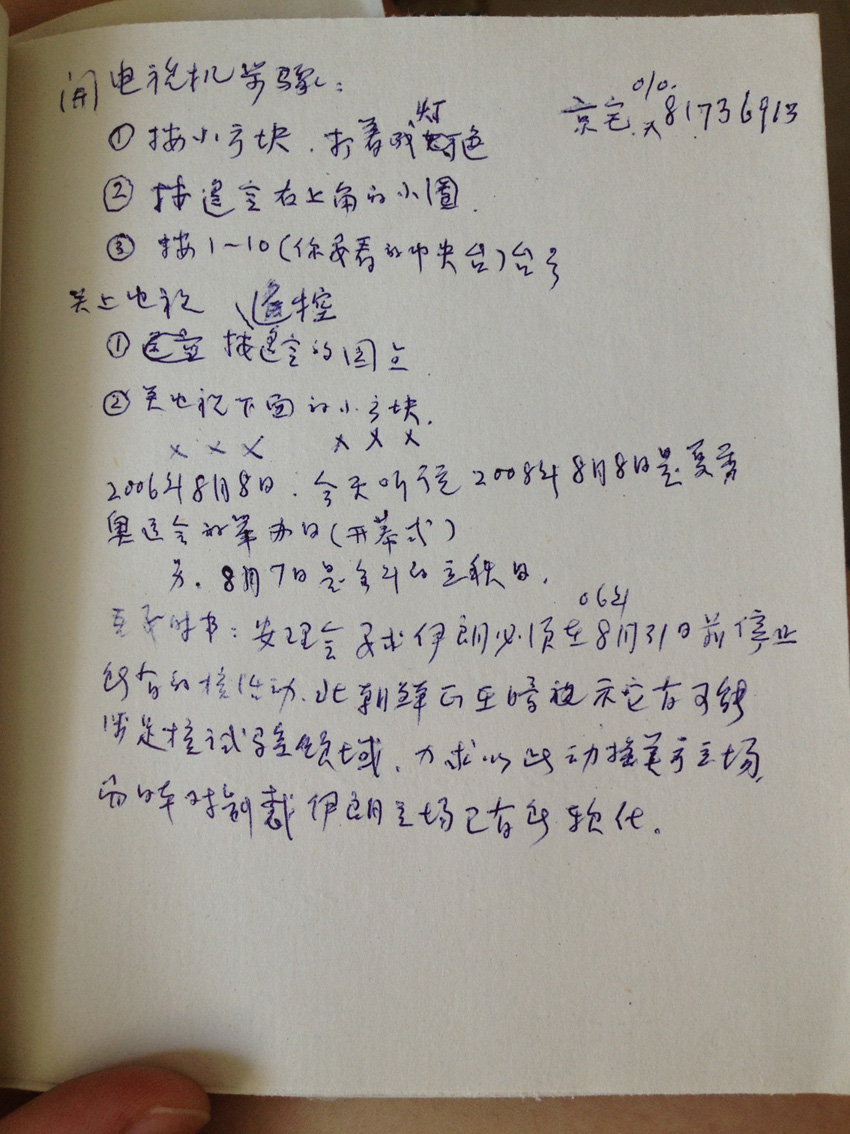 开电视机步骤：
010.
京宅 81736913
① 按小方块，打着 灯 色
② 按遥空右上角的小圆.
③ 按1~10（你要看的中央台）台号
关上电视 遥控
① 按遥空的园点
② 关电视下面的小方块.
× × × × × ×
2006年8月8日：今天听说2008年8月8日是夏季
奥运会的举办日（开幕式）
另. 8月7日是今年的立秋日.
06年
时书：安理会要求伊朗必须在8月31日前停止
所有的核活动.此朝鲜正在暗示它有可能
涉足核试 领域，力求以此动摇美方立场，
而日本对制裁伊朗立场已有所软化。